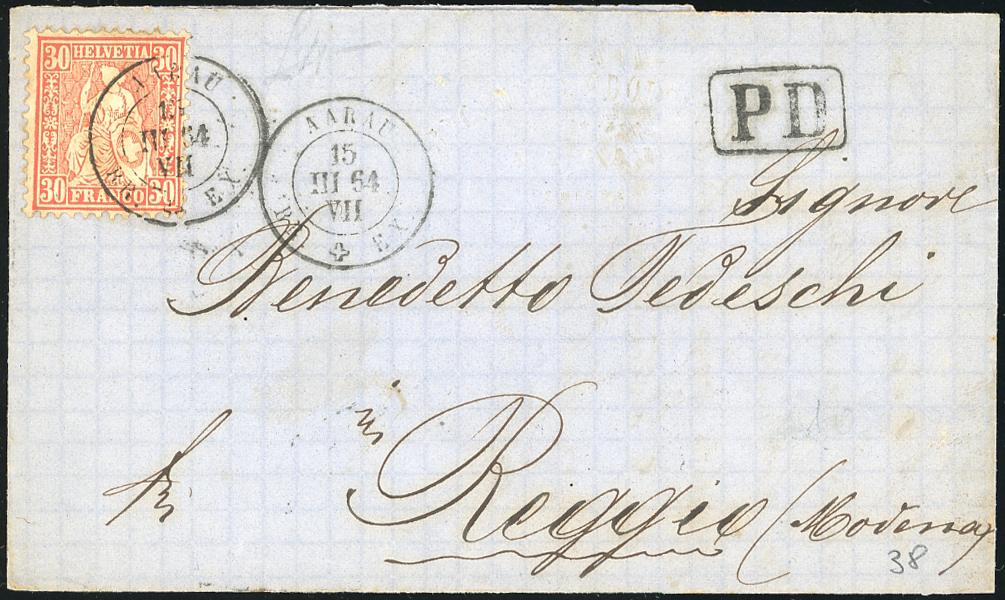 30 HELVETIA 30
30 FRANCO 30
AARAU
III 64
VII
EX
AARAU
15
III 64
VII
EX
PD
Signore
Benedetto Tedeschi
in
Reggio (Modena)
38